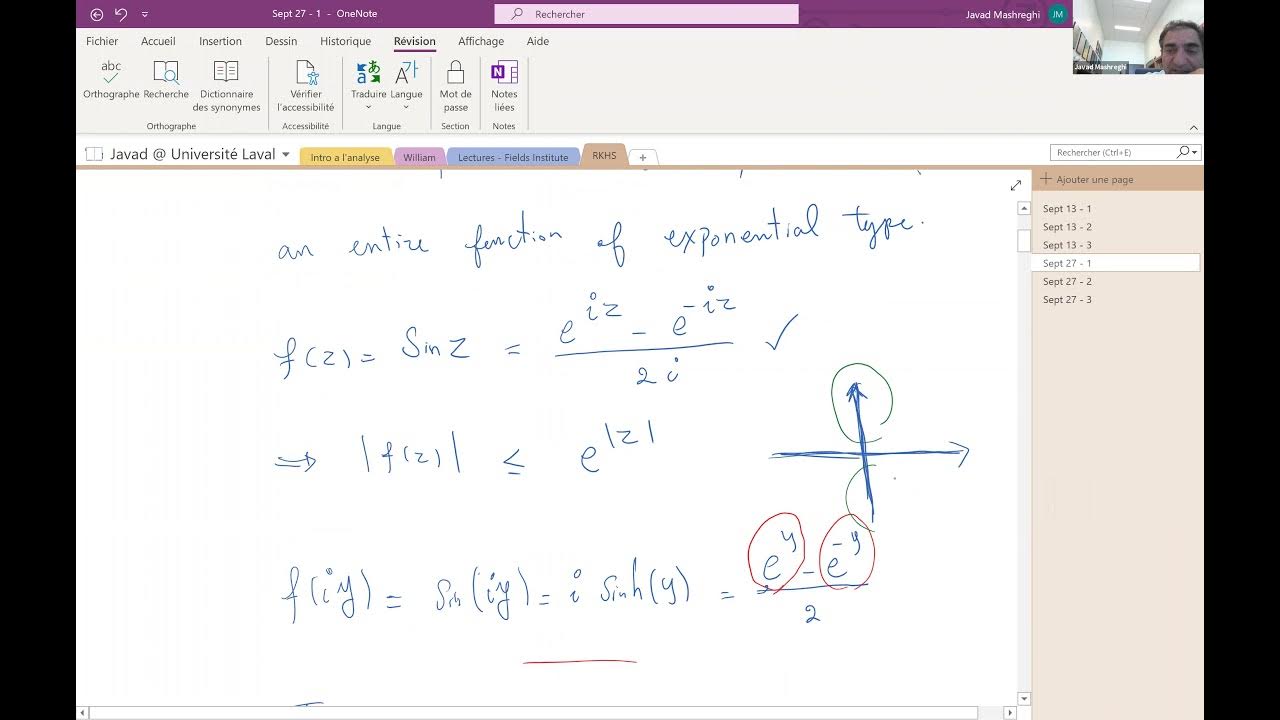 Sept 27 - 1 - OneNote
Rechercher
Javad Mashreghi
JM
Javad Mashreghi
Fichier Accueil Insertion Dessin Historique Révision Affichage Aide
abc
Orthographe Recherche Dictionnaire des synonymes
Vérifier l'accessibilité
Traduire Langue
Mot de passe
Notes liées
Orthographe Accessibilité Langue Section Notes
Javad @ Université Laval
Intro a l'analyse William Lectures - Fields Institute RKHS +
Rechercher (Ctrl+E)
Ajouter une page
Sept 13 - 1
Sept 13 - 2
Sept 13 - 3
Sept 27 - 1
Sept 27 - 2
Sept 27 - 3
an entire function of exponential type.
f(z) = Sin z = (e^{iz} - e^{-iz}) / 2i ✓
⇒ |f(z)| ≤ e^{|z|}
f(iy) = Sin(iy) = i Sinh(y) = (e^y - e^{-y}) / 2